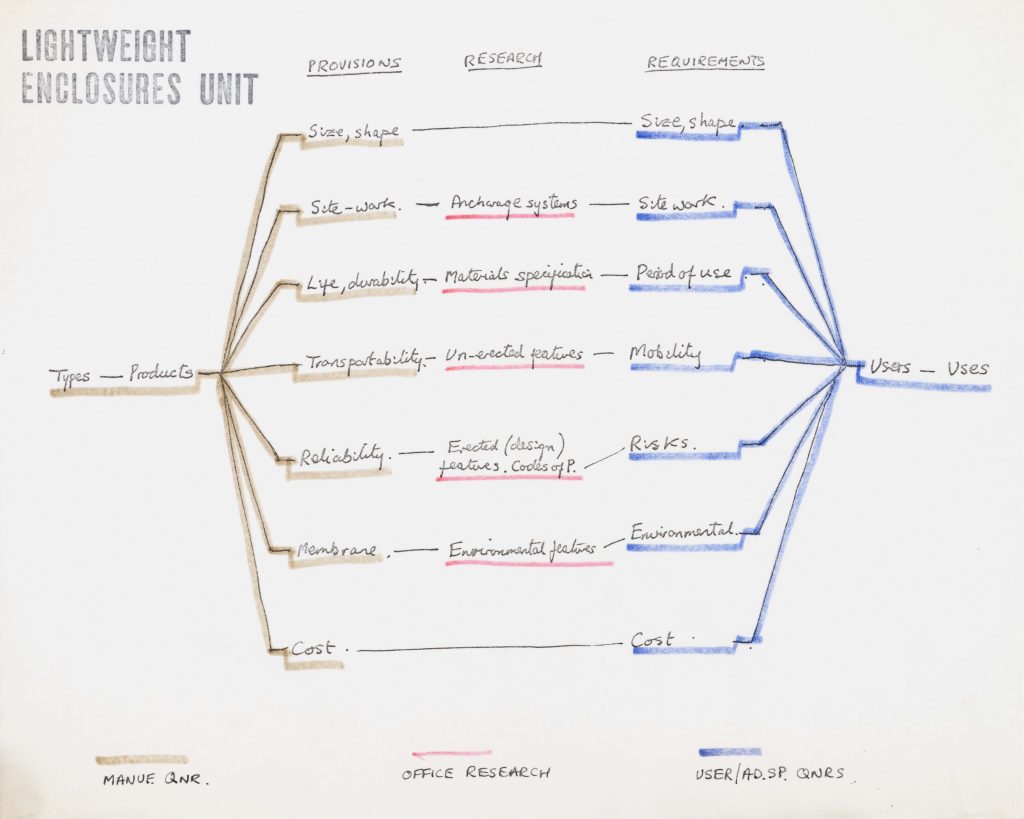 LIGHTWEIGHT
ENCLOSURES UNIT
PROVISIONS RESEARCH REQUIREMENTS
Size, shape Size, shape
Site-work. Anchorage systems Site work.
Life, durability Materials specification Period of use
Transportability Un-erected features Mobility
Types — Products Users — Uses
Reliability. Erected (design) Risks.
features. Codes of P.
Membrane. Environmental features Environmental.
Cost. Cost.
MANUF. QNR. OFFICE RESEARCH USER/AD.SP. QNRS.